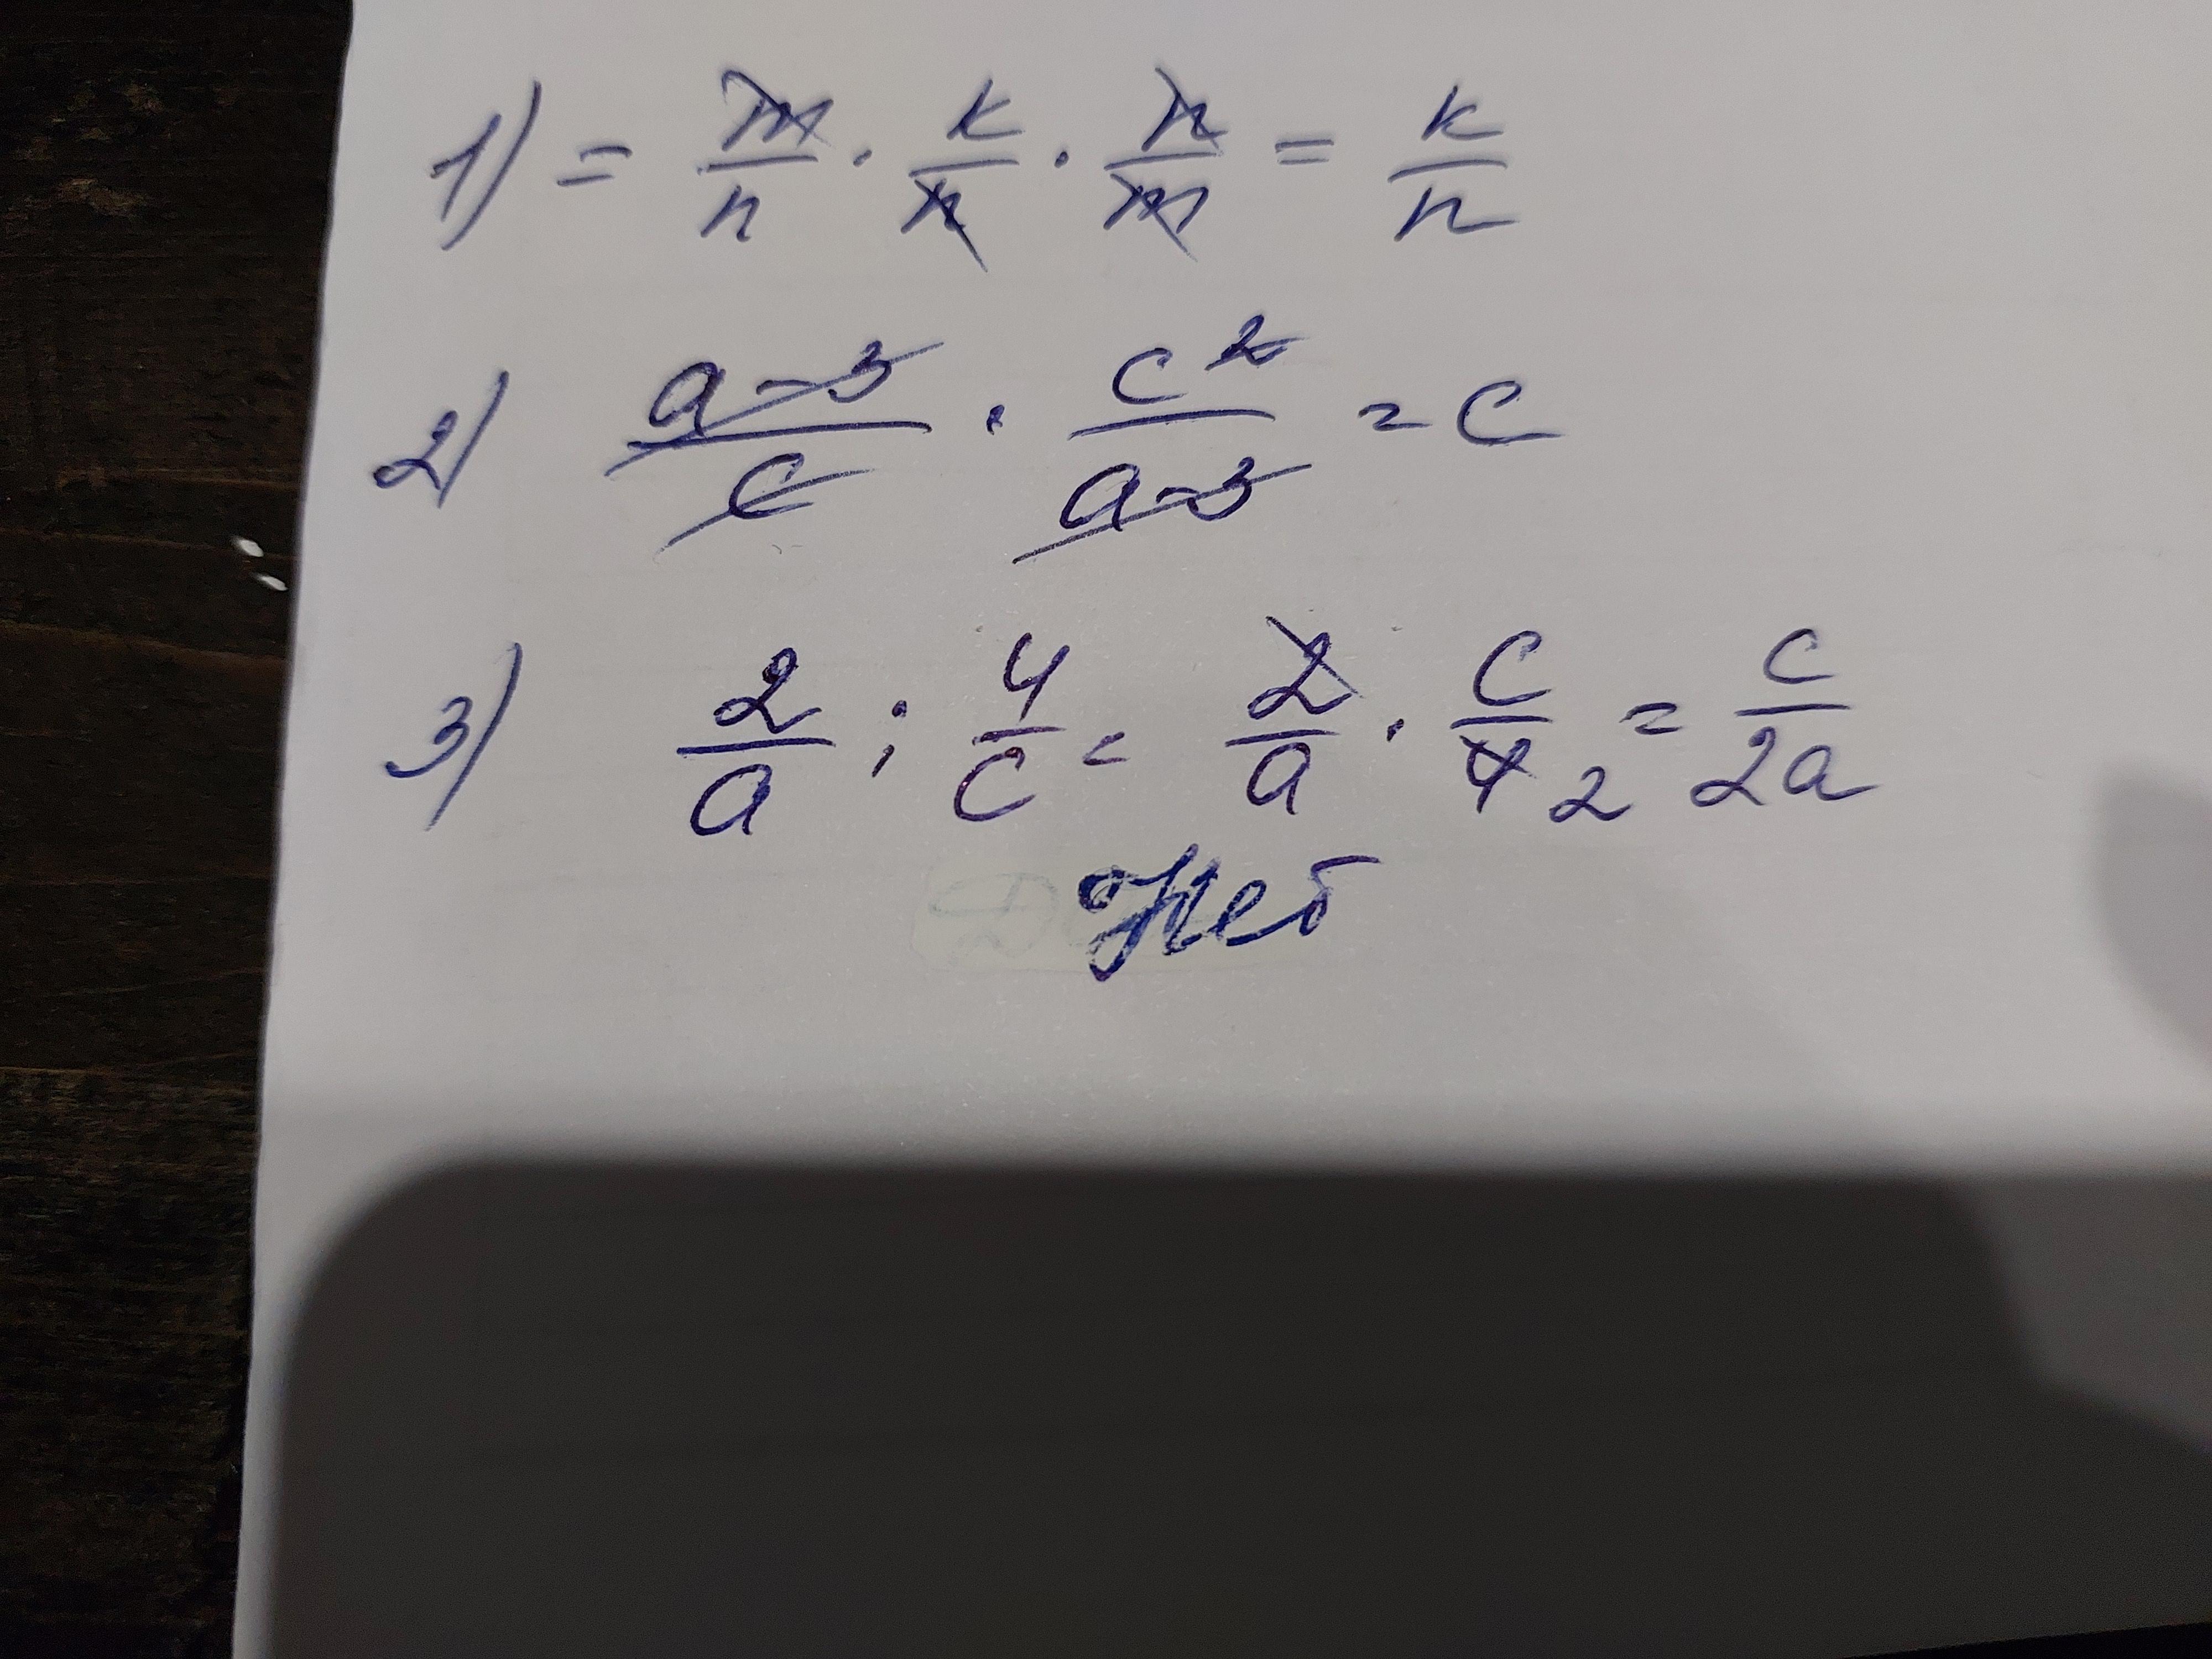 1) = m/n · k/n · n/m = k/n
2) a-3/c · c²/a-3 = c
3) 2/a : 4/c = 2/a · c/4 2 = c/2a
Нет